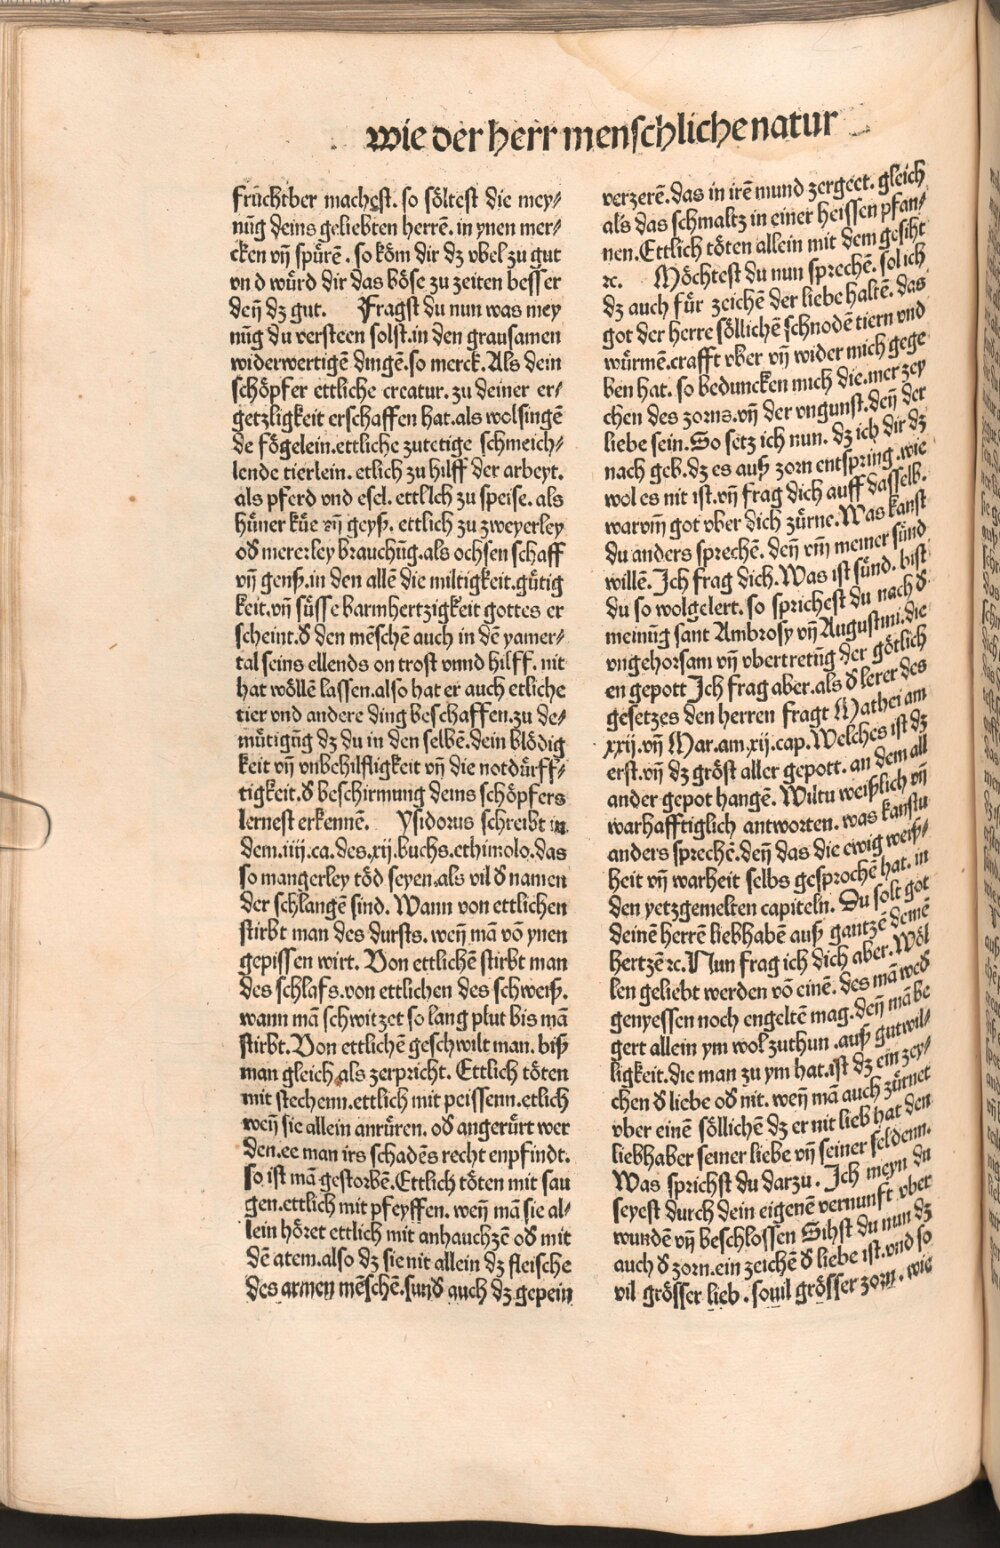 wie der herr menschliche natur
frúchtber machest. so sőltest die mey⸗
nūg deins geliebten herrē. in ynen mer⸗
cken vn̄ spürē. so kőm dir dz vbel zu gut
vn d würd dir das bőse zu zeiten besser
den̄ dz gut. Fragst du nun was mey
nūg du versteen solst.in den grausamen
widerwertigē dingē.so merck. Als dein
schőpfer ettliche creatur. zu deiner er⸗
getzligkeit erschaffen hat.als wolsingē
de főgelein.ettliche zutetige schmeich⸗
lende tierlein. etlich zu hilff der arbeyt.
als pferd vnd esel. ettlich zu speise. als
hüner küe vn̄ geyß. ettlich zu zweyerley
oď mererley brauchūg.als ochsen schaff
vn̄ genß.in den allē die miltigkeit.gütig
keit.vn̄ süsse barmhertzigkeit gottes er
scheint.ď den mēschē auch in dē yamer⸗
tal seins ellends on trost vnnd hilff. nit
hat wőllē lassen.also hat er auch etliche
tier vnd andere ding beschaffen.zu de⸗
mütigūg dz du in den selbē.dein blődig
keit vn̄ vnbehilfligkeit vn̄ die notdürff⸗
tigkeit.ď beschirmung deins schőpfers
lernest erkennē. Ysidorus schreibt in
dem.iiij.ca.des.xij.buchs.ethimolo.das
so mangerley tőd seyen.als vil ď namen
der schlangē sind. Wann von ettlichen
stirbt man des dursts. wen̄ mā vō ynen
gepissen wirt. Von ettlichē stirbt man
des schlafs.von ettlichen des schweiß.
wann mā schwitzet so lang plut bis mā
stirbt.Von ettlichē geschwilt man. biß
man gleich als zerpricht. Ettlich tőten
mit stechenn.ettlich mit peissenn.etlich
wen̄ sie allein anrüren. oď angerürt wer
den.ee man irs schadēs recht enpfindt.
so ist mā gestorbē.Ettlich tőten mit sau
gen.ettlich mit pfeyffen. wen̄ mā sie al⸗
lein hőret ettlich mit anhauchzē oď mit
dē atem.also dz sie nit allein dz fleische
des armen mēschē.sund̄ auch dz gepein
verzerē.das in irē mund zergeet. gleich
als das schmaltz in einer heissen pfan⸗
nen.Ettlich tőten allein mit dem gesiht
ꝛc. Mőchtest du nun sprechē. sol ich
dz auch für zeichē der liebe haltē. das
got der herre sőllichē schnodē tiern vnd
würmē.crafft vber vn̄ wider mich gege
ben hat. so beduncken mich die.mer zey
chen des zorns.vn̄ der vngunst.den̄ der
liebe sein.So setz ich nun. dz ich dir dz
nach geb.dz es auß zorn entspring.wie
wol es nit ist.vn̄ frag dich auff dasselb.
warvm̄ got vber dich zürne.Was kanst
du anders sprechē. den̄ vm̄ meiner sünd
willē.Ich frag dich.Was ist sünd. bist
du so wolgelert. so sprichest du nach ď
meinūg sant Ambrosy vn̄ Augustini.die
vngehorsam vn̄ vbertretūg der gőtlich
en gepott Ich frag aber.als ď lerer des
gesetzes den herren fragt Mathei am
xxij.vn̄ Mar.am.xij.cap.Welches ist dz
erst.vn̄ dz grőst aller gepott. an dem all
ander gepot hangē. Wiltu weißlich vn̄
warhafftiglich antworten. was kanstu
anders sprechē.den̄ das die ewig weiß⸗
heit vn̄ warheit selbs gesprochē hat. in
den yetzgemelten capiteln. Du solt got
deinē herrē liebhabē auß gantzē deinē
hertzē ꝛc.Nun frag ich dich aber.Wől
len geliebt werden vō einē. des mā weď
genyessen noch engeltē mag.den̄ mā be
gert allein ym wol zuthun .auß gutwil⸗
ligkeit.die man zu ym hat.ist dz ein zey⸗
chen ď liebe oď nit. wen̄ mā auch zürnet
vber einē sőllichē dz er nit lieb hat den
liebhaber seiner liebe vn̄ seiner seldenn.
Was sprichst du darzu. Ich meyn du
seyest durch dein eigenē vernunft vber
wundē vn̄ beschlossen Sihst du nun dz
auch ď zorn.ein zeichē ď liebe ist.vnd so
vil grősser lieb . souil grősser zorn . wie